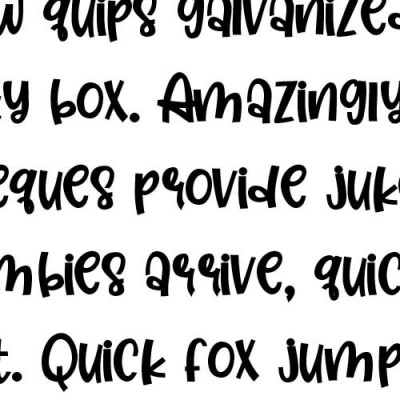 w quips galvanized
y box. Amazingly
eques provide juk
mbies arrive, quic
t. Quick fox jump